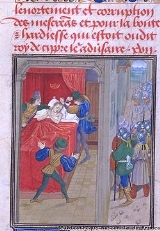 lenortement et corruption
des miserats et pour la bonte
hardiesse qui estoit oudit
roy de cipre le adusaire. xviii.